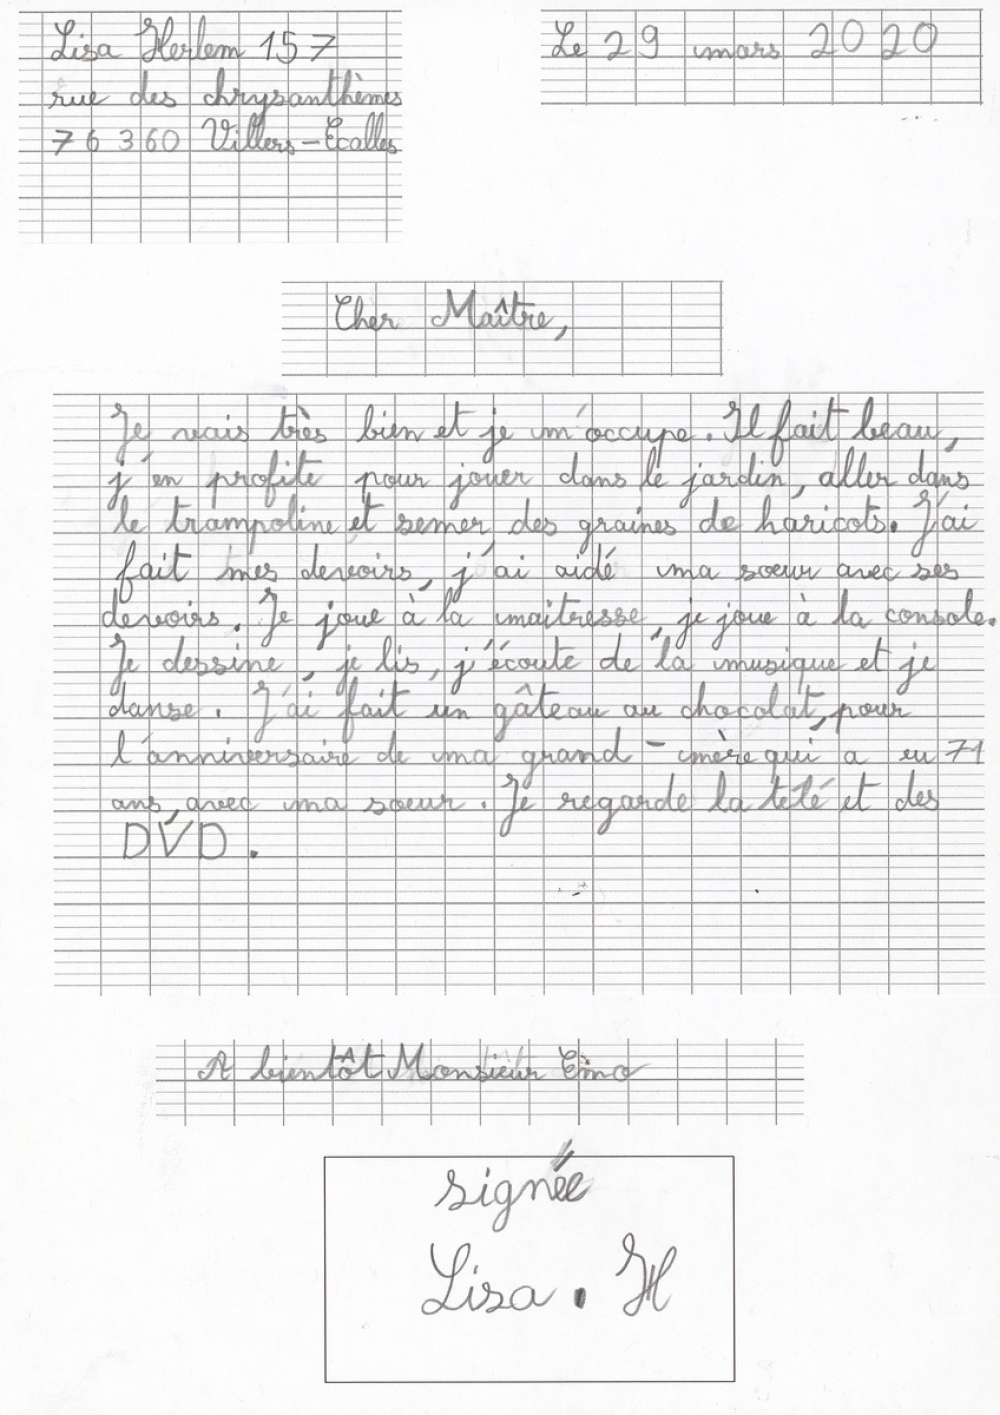 Lisa Herlem 157
rue des chrysanthèmes
76360 Villers-Ecalles
Le 29 mars 2020
Cher Maître,
Je vais très bien et je m'occupe. Il fait beau,
j'en profite pour jouer dans le jardin, aller dans
le trampoline et semer des graines de haricots. J'ai
fait mes devoirs, j'ai aidé ma soeur avec ses
devoirs. Je joue à la maitresse, je joue à la console.
Je dessine, je lis, j'écoute de la musique et je
danse. J'ai fait un gâteau au chocolat, pour
l'anniversaire de ma grand-mère qui a eu 71
ans, avec ma soeur. Je regarde la télé et des
DVD.
A bientôt Monsieur
signée
Lisa. H